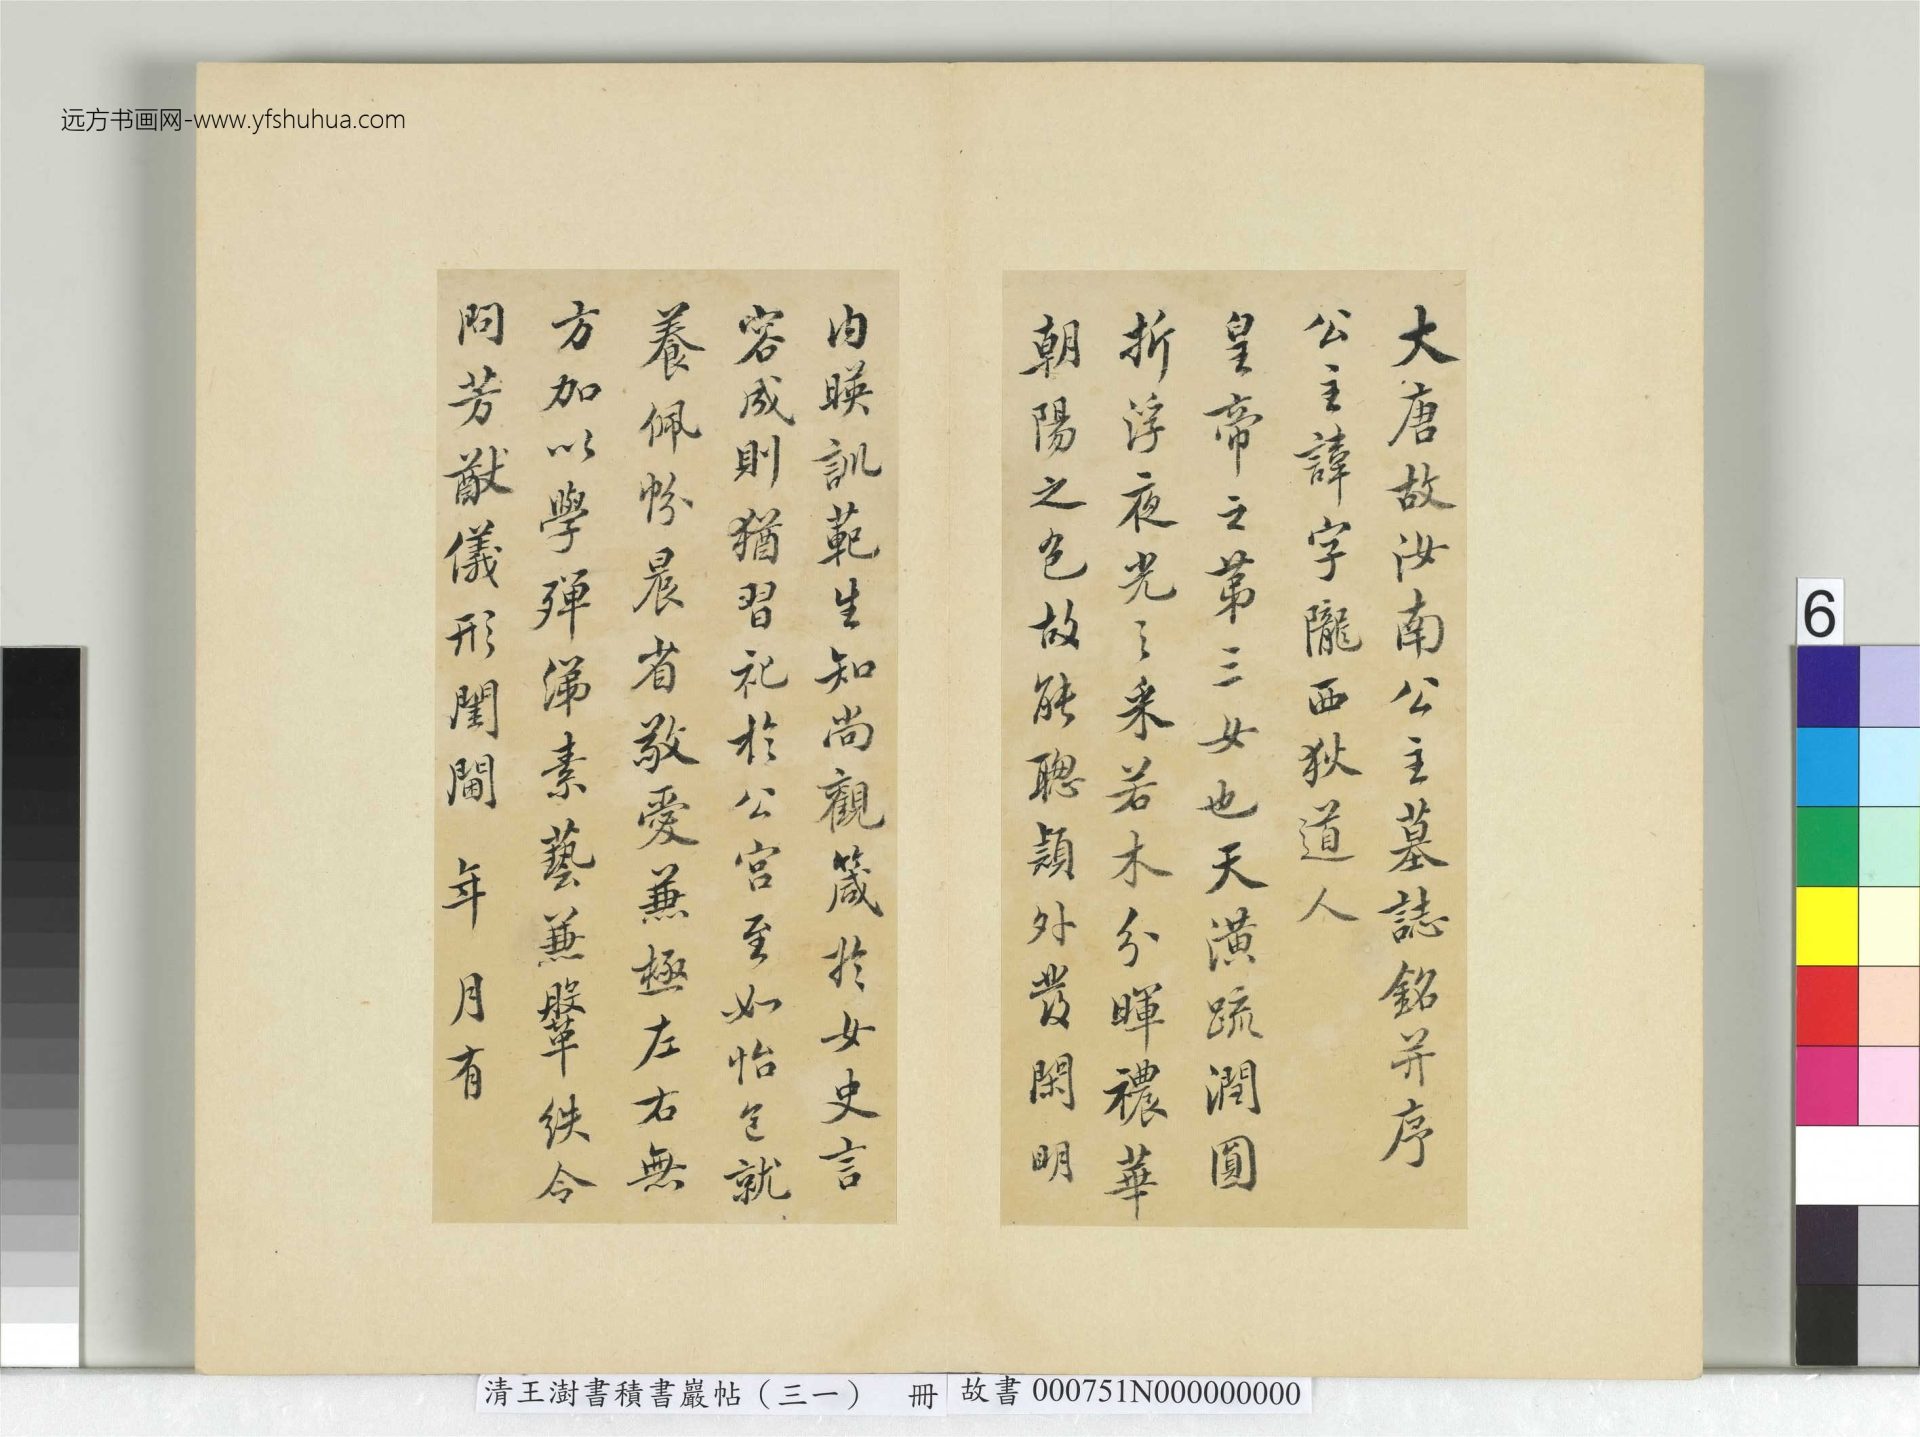 远方书画网-www.yfshuhua.com
大唐故汝南公主墓誌銘并序
公主諱字隴西狄道人
皇帝之第三女也天潢疏潤圓
折浮夜光之采若木分暉穠華
朝陽之色故能聰穎外發閑明
内暎訓範生知尚觀箴於女史言
容成則猶習祀於公宮至如怡色就
養佩帉晨省敬愛兼極左右無
方加以學殫綈素藝兼鞶紩令
問芳猷儀形閨閫 年 月有
6
清王澍書積書巖帖（三一） 冊
故書 000751N000000000